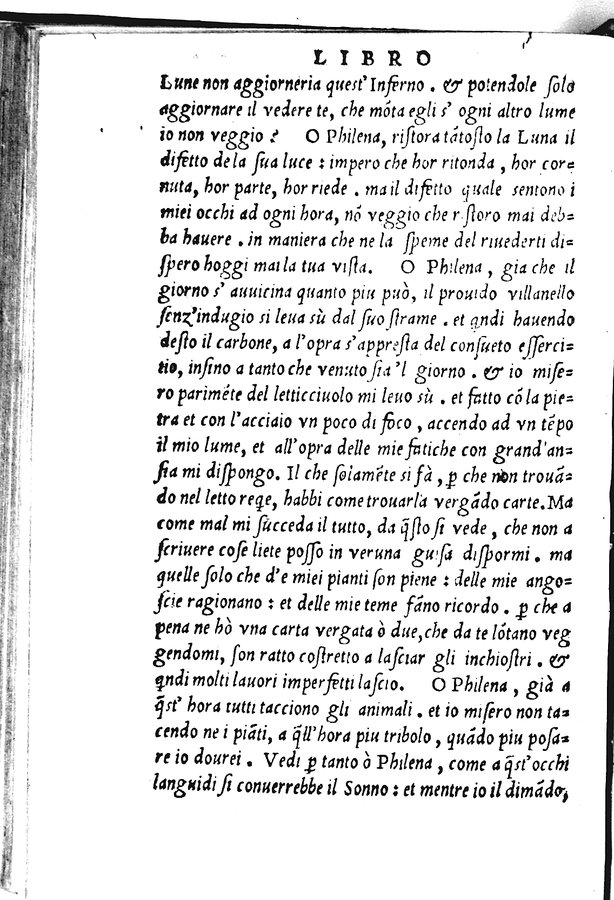 LIBRO
Lune non aggiorneria quest' Inferno . & potendole solo
aggiornare il vedere te, che mõta egli s' ogni altro lume
io non veggio ? O Philena, ristora tãtosto la Luna il
difetto de la sua luce : impero che hor ritonda , hor cor=
nuta, hor parte, hor riede . ma il difetto quale sentono i
miei occhi ad ogni hora, nõ veggio che ristoro mai deb=
ba hauere . in maniera che ne la speme del riuederti di=
spero hoggi mai la tua vista. O Philena , gia che il
giorno s' auuicina quanto piu può, il prouido villanello
senz' indugio si leua sù dal suo strame . et qndi hauendo
desto il carbone, a l'opra s'appresta del consueto esserci=
tio, insino a tanto che venuto sia 'l giorno . & io mise=
ro parimẽte del letticciuolo mi leuo sù . et fatto cõ la pie=
tra et con l'acciaio vn poco di foco , accendo ad vn tẽpo
il mio lume, et all'opra delle mie fatiche con grand'an=
sia mi dispongo. Il che solamẽte si fà , ꝑ che non trouã=
do nel letto reqe, habbi come trouarla vergãdo carte. Ma
come mal mi succeda il tutto, da q̃sto si vede , che non a
scriuere cose liete posso in veruna guisa dispormi . ma
quelle solo che d'e miei pianti son piene : delle mie ango=
scie ragionano : et delle mie teme fãno ricordo . ꝑ che a
pena ne hò vna carta vergata ò due, che da te lõtano veg
gendomi, son ratto costretto a lasciar gli inchiostri . &
qndi molti lauori imperfetti lascio. O Philena , già a
q̃st' hora tutti tacciono gli animali . et io misero non ta=
cendo ne i piãti, a q̃ll'hora piu tribolo , quãdo piu posa=
re io dourei . Vedi ꝑ tanto ò Philena , come a q̃st' occhi
languidi si conuerrebbe il Sonno : et mentre io il dimãdo,